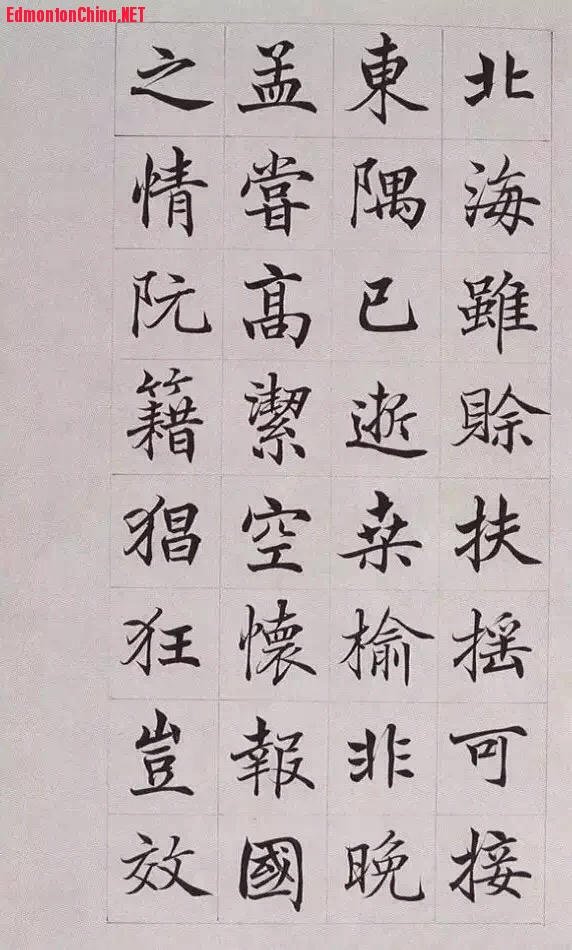 EdmontonChina.NET
北海雖賒扶摇可接
東隅已逝桒榆非晚
孟嘗高潔空懷報國
之情阮籍猖狂豈效